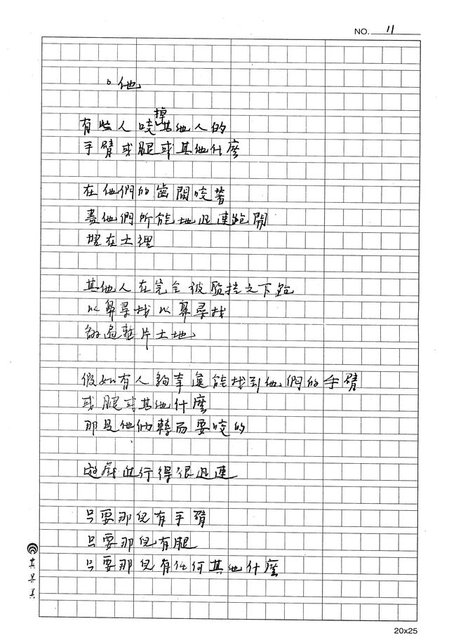 NO. 11
。他
有些人咬掉其他人的
手臂或腿或其他什麼
在他們的齒間咬著
盡他們所能地迅速跑開
埋在土裡
其他人在完全被監控之下跑
以鼻尋找以鼻尋找
翻遍整片土地
假如有人夠幸運能找到他們的手臂
或腿或其他什麼
那是他們轉而要咬的
遊戲進行得很迅速
只要那兒有手臂
只要那兒有腿
只要那兒有任何其他什麼
20x25